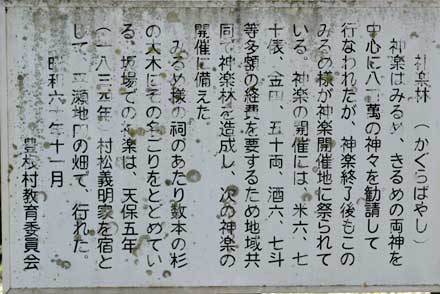 神楽林（かぐらばやし）
神楽はみるめ、きるめの両神を
中心に八百萬の神々を勧請して
行なわれたが、神楽終了後もこの
みるめ様が神楽開催地に祭られて
いる。神楽の開催には、米六、七
十俵、金四、五十両、酒六、七斗
等多額の経費を要するため地域共
同で神楽林を造成し、次の神楽の
開催に備えた
みるめ様の祠のあたり数本の杉
の大木にそのなごりをとどめてい
る。坂場での神楽は、天保五年
（一八三五年）村松義明家を宿と
して、平瀬地内の畑で、行れた。
昭和六十年十一月
豊根村教育委員会